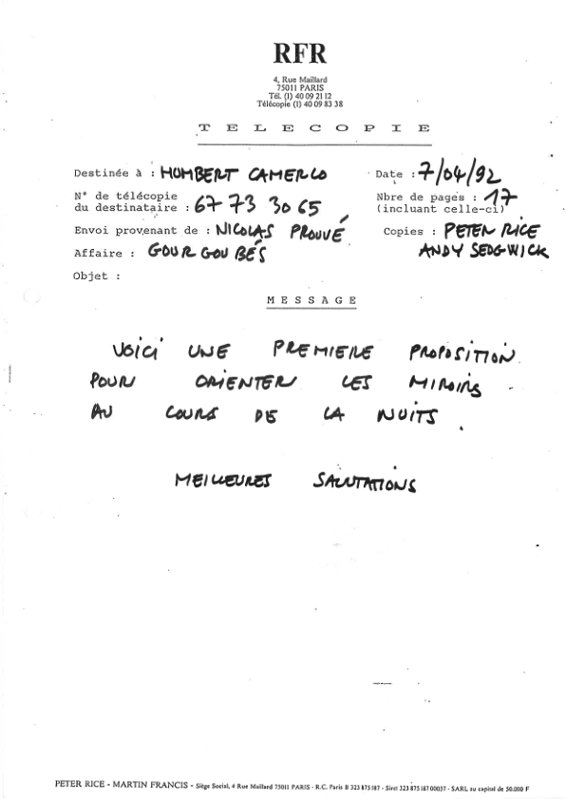 RFR
4, Rue Maillard
75011 PARIS
Tél. (1) 40 09 21 12
Télécopie (1) 40 09 83 38
TELECOPIE
Destinée à : HUMBERT CAMERLO
Date : 7/04/92
N° de télécopie
du destinataire : 67 73 30 65
Nbre de pages : 17
(incluant celle-ci)
Envoi provenant de : NICOLAS PROUVÉ
Copies : PETER RICE
ANDY SEDGWICK
Affaire : GOURGOUBÉS
Objet :
MESSAGE
VOICI UNE PREMIERE PROPOSITION
POUR ORIENTER LES MIROIRS
AU COURS DE LA NUITS.
MEILLEURES SALUTATIONS
PETER RICE - MARTIN FRANCIS - Siège Social, 4 Rue Maillard 75011 PARIS - R.C. Paris B 323 875 187 - Siret 323 875 187 00037 - SARL au capital de 50.000 F